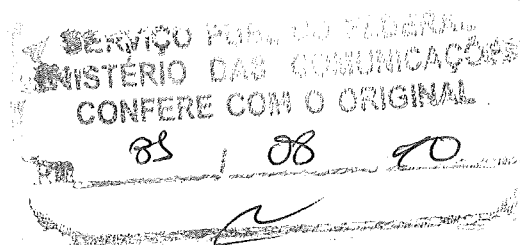 SERVIÇO PÚBLICO FEDERAL
MINISTÉRIO DAS COMUNICAÇÕES
CONFERE COM O ORIGINAL
/ 08 10